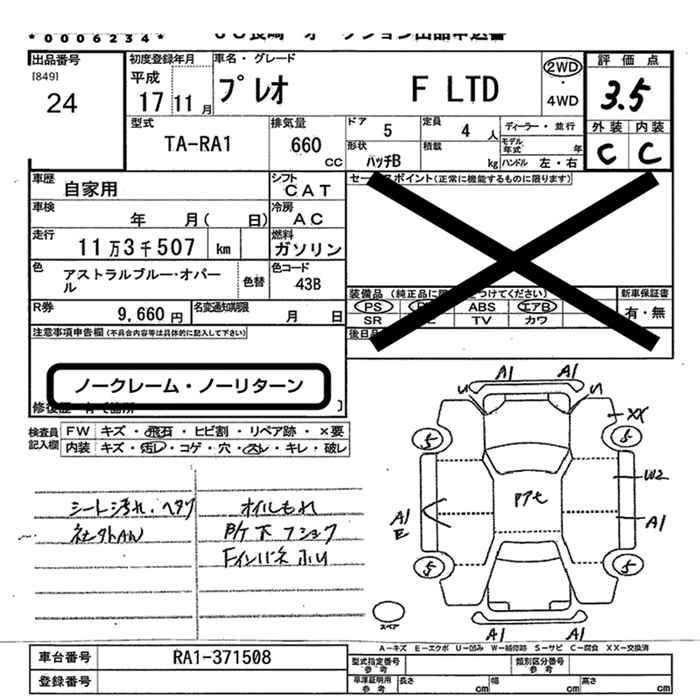 *0006234*
JU長崎 オークション出品申込書
出品番号
[849]
24
初度登録年月
平成
17 11月
車名・グレード
プレオ F LTD
2WD
・
4WD
評価点
3.5
外装 内装
C C
型式
TA-RA1
排気量
660
CC
ドア 5
定員 4人
ディーラー・並行
モデル年式 年
形状
ハッチB
積載 kg
ハンドル 左・右
車歴
自家用
シフト
CAT
車検
年 月( 日)
冷房
AC
走行
11万3千507 km
燃料
ガソリン
色
アストラルブルー・オパール
色替
色コード
43B
R券
9,660円
名変通知期限
月 日
セールスポイント(正常に機能するものに限ります)
装備品
PS
ABS エアB
SR TV カワ
新車保証書
有・無
後日品
注意事項申告欄(不具合内容等は具体的に記入して下さい)
ノークレーム・ノーリターン
検査員
記入欄
FW キズ・飛石・ヒビ割・リペア跡・×要
内装 キズ・汚レ・コゲ・穴・スレ・キレ・破レ
シート汚れ・ヘタリ
オイルもれ
下フショク
A1 A1
U U
XX
5 5
W2
A1
A1
E
5 5
A1 A1
スペア
A-キズ E-エクボ U-凹み W-補修跡 S-サビ C-腐食 XX-交換済
車台番号
RA1-371508
登録番号
型式指定番号
参考
類別区分番号
参考
車庫証明用
参考
長さ cm
幅 cm
高さ cm